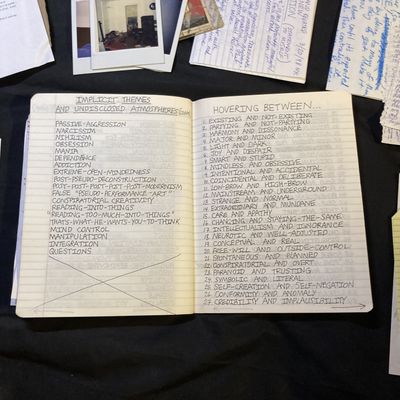 IMPLICIT THEMES
AND UNDISCLOSED ATMOSPHERES
PASSIVE-AGGRESSION
NARCISSIM
NIHILISM
OBSESSION
MANIA
DEPENDENCE
ADDICTION
EXTREME-OPEN-MINDEDNESS
POST-PSEUDO-DECONSTRUCTION
POST-POST-POST-POST-POST-MODERNISM
FALSE "PSEUDO-PERFORMANCE-ART"
CONSPIRATORIAL CREATIVITY
READING-INTO-THINGS
"READING-TOO-MUCH-INTO-THINGS"
THAT'S-WHAT-HE-WANTS-YOU-TO-THINK
MIND CONTROL
MANIPULATION
INTEGRATION
QUESTIONS
HOVERING BETWEEN...
1. EXISTING AND NOT-EXISTING
2. PARTYING AND NOT-PARTYING
3. HARMONY AND DISSONANCE
4. MAJOR AND MINOR
5. LIGHT AND DARK
6. JOY AND DESPAIR
7. SMART AND STUPID
8. MINDLESS AND OBSESSIVE
9. INTENTIONAL AND ACCIDENTAL
10. COINCIDENTAL AND DELIBERATE
11. LOW-BROW AND HIGH-BROW
12. MAINSTREAM AND UNDERGROUND
13. STRANGE AND NORMAL
14. EXTRAORDINARY AND MUNDANE
15. CARE AND APATHY
16. CHANGING AND STAYING-THE-SAME
17. INTELLECTUALISM AND IGNORANCE
18. NEUROTIC AND WELL-ADJUSTED
19. CONCEPTUAL AND REAL
20. FREE-WILL AND OUTSIDE-CONTROL
21. SPONTANEOUS AND PLANNED
22. CONSPIRATORIAL AND OVERT
23. PARANOID AND TRUSTING
24. SYMBOLIC AND LITERAL
25. SELF-CREATION AND SELF-NEGATION
26. CONFORMITY AND ANOMALY
27. CREDIBILITY AND IMPLAUSIBILITY